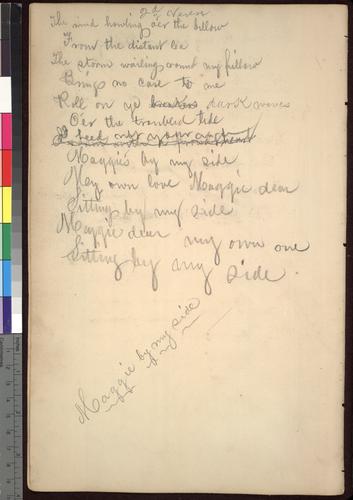 2d Verse
The wind howling o'er the billow
From the distant lea
The storm wailing round my pillow
Brings no care to me
Roll on ye dark waves
O'er the troubled tide
I heed not your
Maggie's by my side
My own love Maggie dear
Sitting by my side
Maggie dear my own one
Sitting by my side.
Maggie by my side